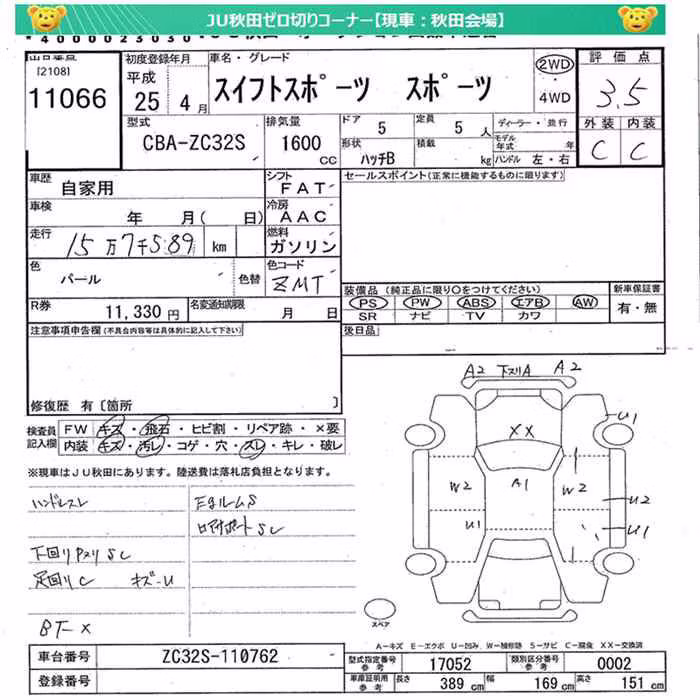 JU秋田ゼロ切りコーナー【現車：秋田会場】
出品番号
[2108]
11066
初度登録年月
平成
25 4月
車名・グレード
スイフトスポーツ スポーツ
2WD
4WD
評価点
3.5
外装 内装
C C
型式
CBA-ZC32S
排気量
1600
cc
ドア 5
定員 5 人
形状 ハッチB
積載 kg
ディーラー・並行
モデル年式 年
ハンドル 左・右
車歴
自家用
シフト
FAT
セールスポイント(正常に機能するものに限ります)
車検
年 月( 日)
冷房
AAC
走行
15万7千589 km
燃料
ガソリン
色
パール
色替
色コード
ZMT
装備品(純正品に限り○をつけてください)
PS PW ABS エアB AW
SR ナビ TV カワ
新車保証書
有・無
R券
11,330 円
名変通知期限
月 日
後日品
注意事項申告欄(不具合内容等は具体的に記入して下さい)
修復歴 有〔箇所 〕
検査員記入欄
FW キズ・飛石・ヒビ割・リペア跡・×要
内装 キズ・汚レ・コゲ・穴・スレ・キレ・破レ
※現車はJU秋田にあります。陸送費は落札店負担となります。
ハンドルスレ
下回りPスリSC
足回りC キズ-U
BT-X
A2 下スリA A2
U1
XX
W2 A1 W2
U2
U1 U1
スペア
A－キズ E－エクボ U－凹み W－補修跡 S－サビ C－腐食 XX－交換済
車台番号 ZC32S-110762
登録番号
型式指定番号 参考 17052
類別区分番号 参考 0002
車庫証明用 参考 長さ 389 cm 幅 169 cm 高さ 151 cm